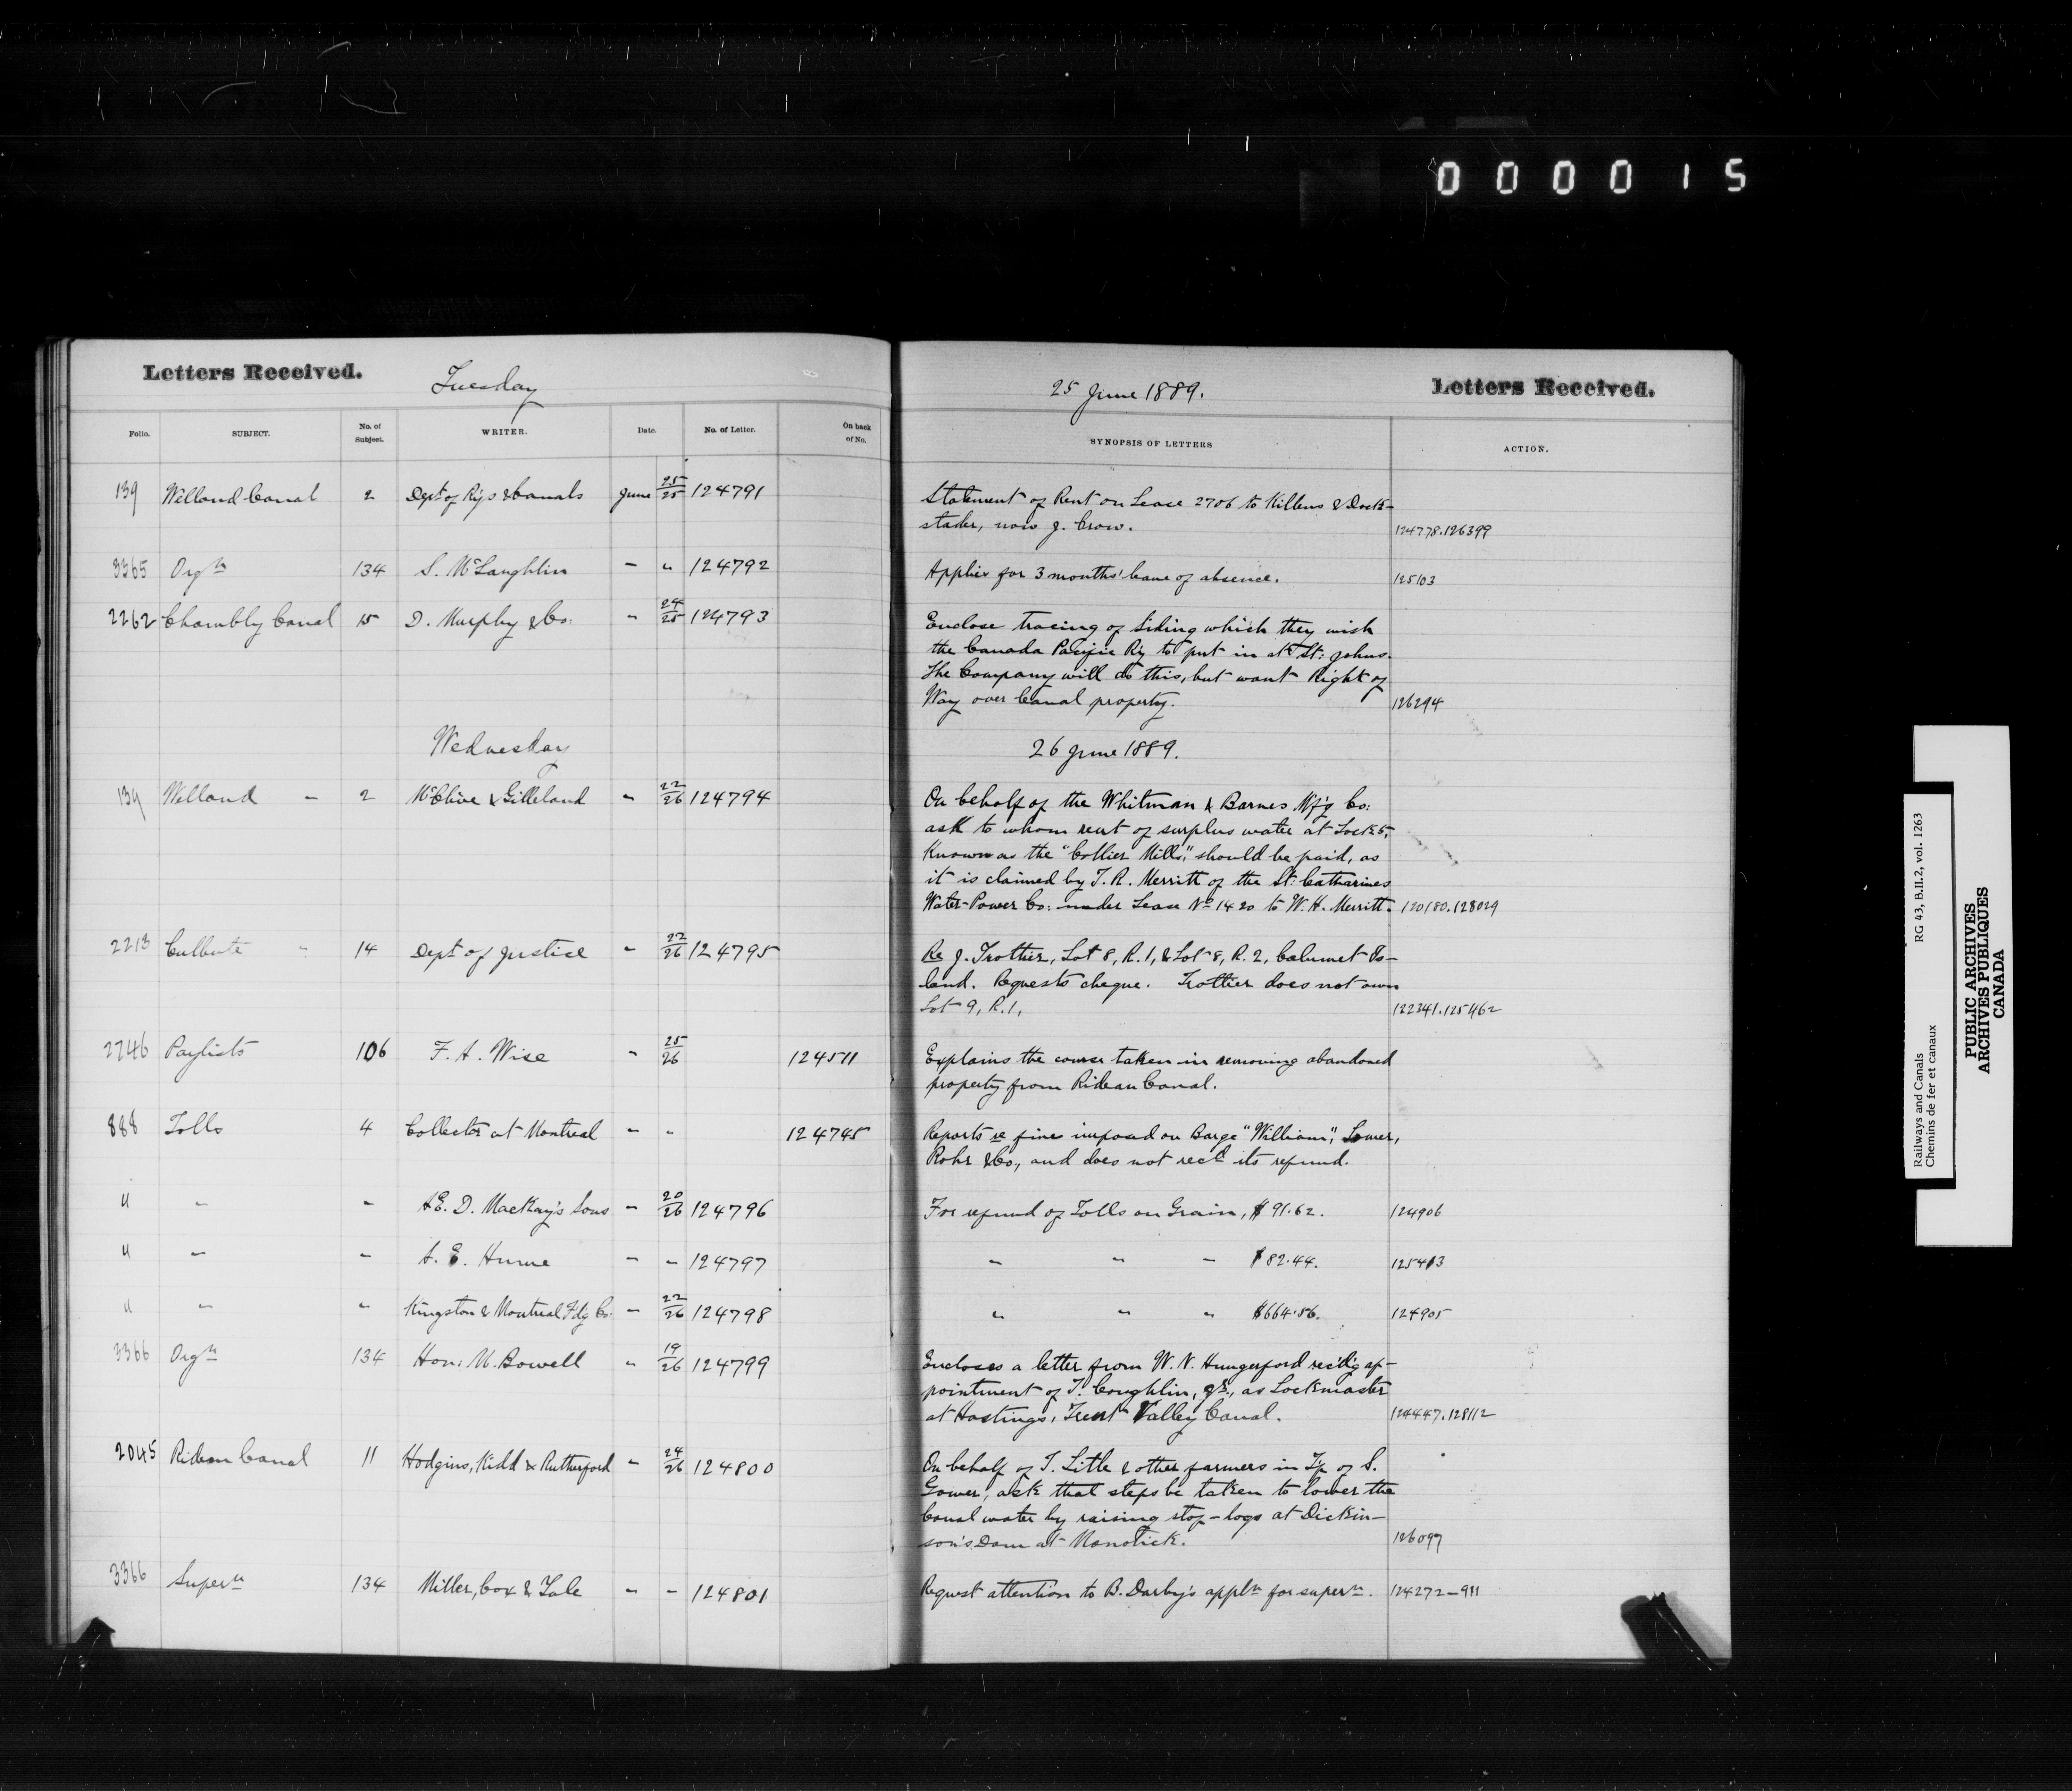 000015
Letters Received. Tuesday 25 June 1889. Letters Received.
Folio. SUBJECT. No. of Subject. WRITER. Date. No. of Letter. On back of No. SYNOPSIS OF LETTERS ACTION.
139 Welland Canal 2 Dept of Rys & Canals June 25/25 124791 Statement of Rent on Lease 2706 to Killens & Dock-
stader, now J. Crow. 124778.126399
3365 Orgn 134 S. McLaughlin - " 124792 Applies for 3 months' leave of absence. 125103
2262 Chambly Canal 15 D. Murphy & Co: - 24/25 124793 Enclose tracing of Siding which they wish
the Canada Pacific Ry to put in at St: Johns.
The Company will do this, but want Right of
Way over Canal property. 126294
Wednesday 26 June 1889.
139 Welland - 2 McClive & Gilleland " 22/26 124794 On behalf of the Whitman & Barnes Mf'g Co:
ask to whom rent of surplus water at Lock 5,
Known as the "Collier Mills", should be paid, as
it is claimed by T. R. Merritt of the St: Catharines
Water-Power Co: under Lease No 1420 to W. H. Merritt. 120180.128029
2213 Culbute " 14 Dept of Justice " 22/26 124795 Re J. Trottier, Lot 8, R. 1, & Lot 8, R. 2, Calumet Is-
land. Requests cheque. Trottier does not own
Lot 9, R. 1, 122341.125462
2746 Paylists 106 F. A. Wise " 25/26 124511 Explains the course taken in removing abandoned
property from Rideau Canal.
888 Tolls 4 Collector at Montreal - " 124745 Reports re fine imposed on Barge "William", Lower,
Rohr & Co, and does not recd its refund.
" " " AE. D. MacKay's Sons - 20/26 124796 For refund of Tolls on Grain, $91.62. 124906
" - - A. E. Hume - - 124797 " " - $82.44. 125413
" " " Kingston & Montreal Fdg Co: - 22/26 124798 " " " $664.56. 124905
3366 Orgn 134 Hon: M. Bowell " 19/26 124799 Encloses a letter from W. N. Hungerford rec'd'g ap-
pointment of T. Coughlin, Jr., as Lockmaster
at Hastings, Trent Valley Canal. 124447.128112
2045 Rideau Canal 11 Hodgins, Kidd & Rutherford " 24/26 124800 On behalf of T. Litle & other farmers in Tp of S.
Gower, ask that steps be taken to lower the
Canal water by raising stop-logs at Dickin-
son's Dam at Manotick. 126097
3366 Supern 134 Miller, Cox & Yale " - 124801 Request attention to B. Darby's appln for supern. 124272-911
RG 43, B.II.2, vol. 1263
Railways and Canals
Chemins de fer et canaux
PUBLIC ARCHIVES
ARCHIVES PUBLIQUES
CANADA